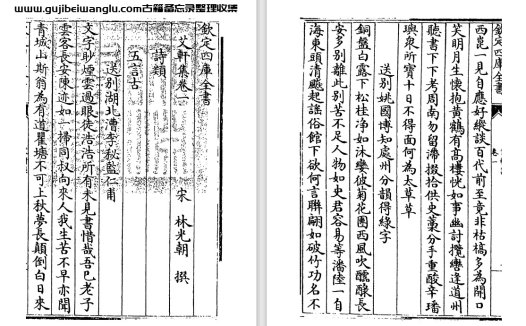 www.gujibeiwanglu.com古籍备忘录整理收集
欽定四庫全書
艾軒集卷一
宋 林光朝 撰
詩類
五言古
送别湖北漕李秘監仁甫
文字眇煙雲過眼徒浩浩所有未見書惜哉吾已老子
雲客長安陳迹如一掃同叔向來人我生苦不早亦聞
青城山斯翁為有道瞿塘不可上秋夢長顛倒白日來
欽定四庫全書
卷一
西崑一見自應好樂談百代前至竟非枯槁多為開口
笑明月生懷抱黃鶴有高樓恍如事幽討攬轡逢道州
聽書下下考周南勿留滯掇拾供史藁分手重酸辛璠
璵衆所寶十日不得面何為太草草
送别姚國博知處州分韻得綠字
銅盤白露下松桂淨如沐孌彼菊花團西風吹醽醁長
安多别離此别苦不足人物如史君容易等潘陸一自
海東頭清飈起謠俗館下欲何言聯翩如破竹功名不